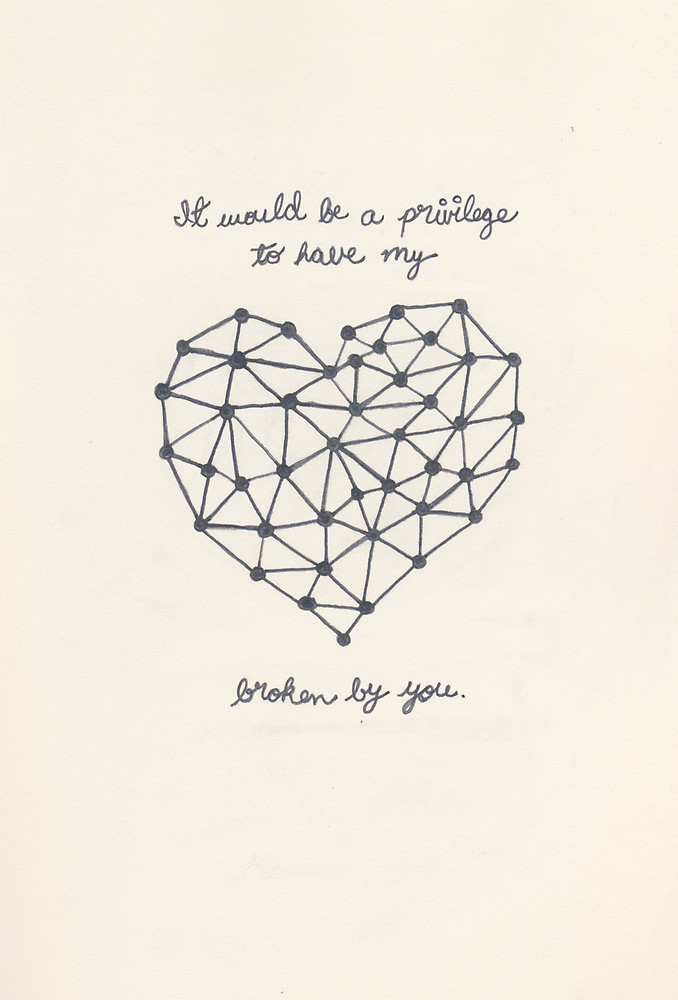 It would be a privilege
to have my
broken by you.